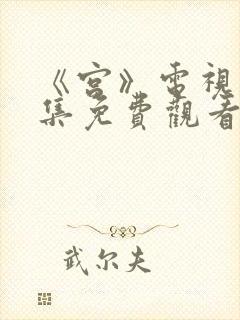 《宮》電視
集免費觀看
武尔夫